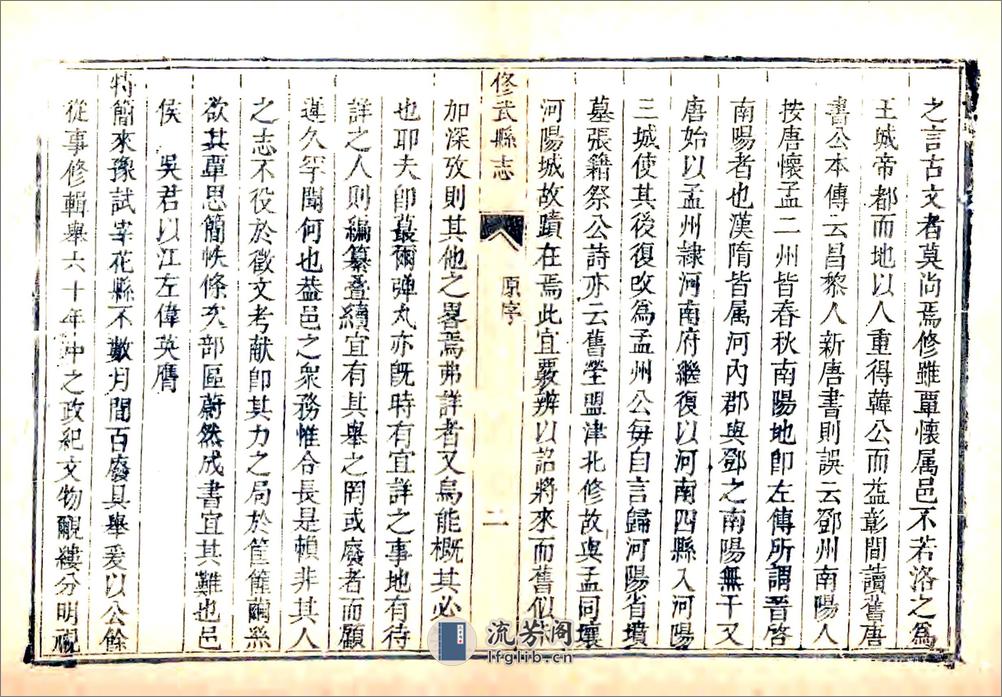 之言古文者莫尚焉修雖覃懷属邑不若洛之為
王城帝都而地以人重得韓公而益彰間讀舊唐
書公本傳云昌黎人新唐書則誤云鄧州南陽人
按唐懷孟二州皆春秋南陽地卽左傳所謂晉啓
南陽者也漢隋皆属河內郡與鄧之南陽無干又
唐始以孟州隸河南府繼復以河南四縣入河陽
三城使其後復改為孟州公每自言歸河陽省墳
墓張籍祭公詩亦云舊塋盟津北修故與孟同壤
河陽城故蹟在焉此宜覈辨以詔將來而舊似未
修武縣志
原序
二
加深攷則其他之畧焉弗詳者又烏能概其必
也耶夫卽蕞爾弹丸亦旣時有宜詳之事地有待
詳之人則編纂叠續宜有其舉之罔或廢者而顧
遵久罕聞何也葢邑之衆務惟令長是賴非其人
之志不役於徵文考献卽其力之局於筐篋爾絲
欲其覃思簡帙條次部區蔚然成書宜其難也邑
侯 吳君以江左偉英膺
特簡來豫試宰花縣不數月間百廢具舉爰以公餘
從事修輯舉六十年中之政紀文物覼縷分明視
流芳阁
lfglib.cn